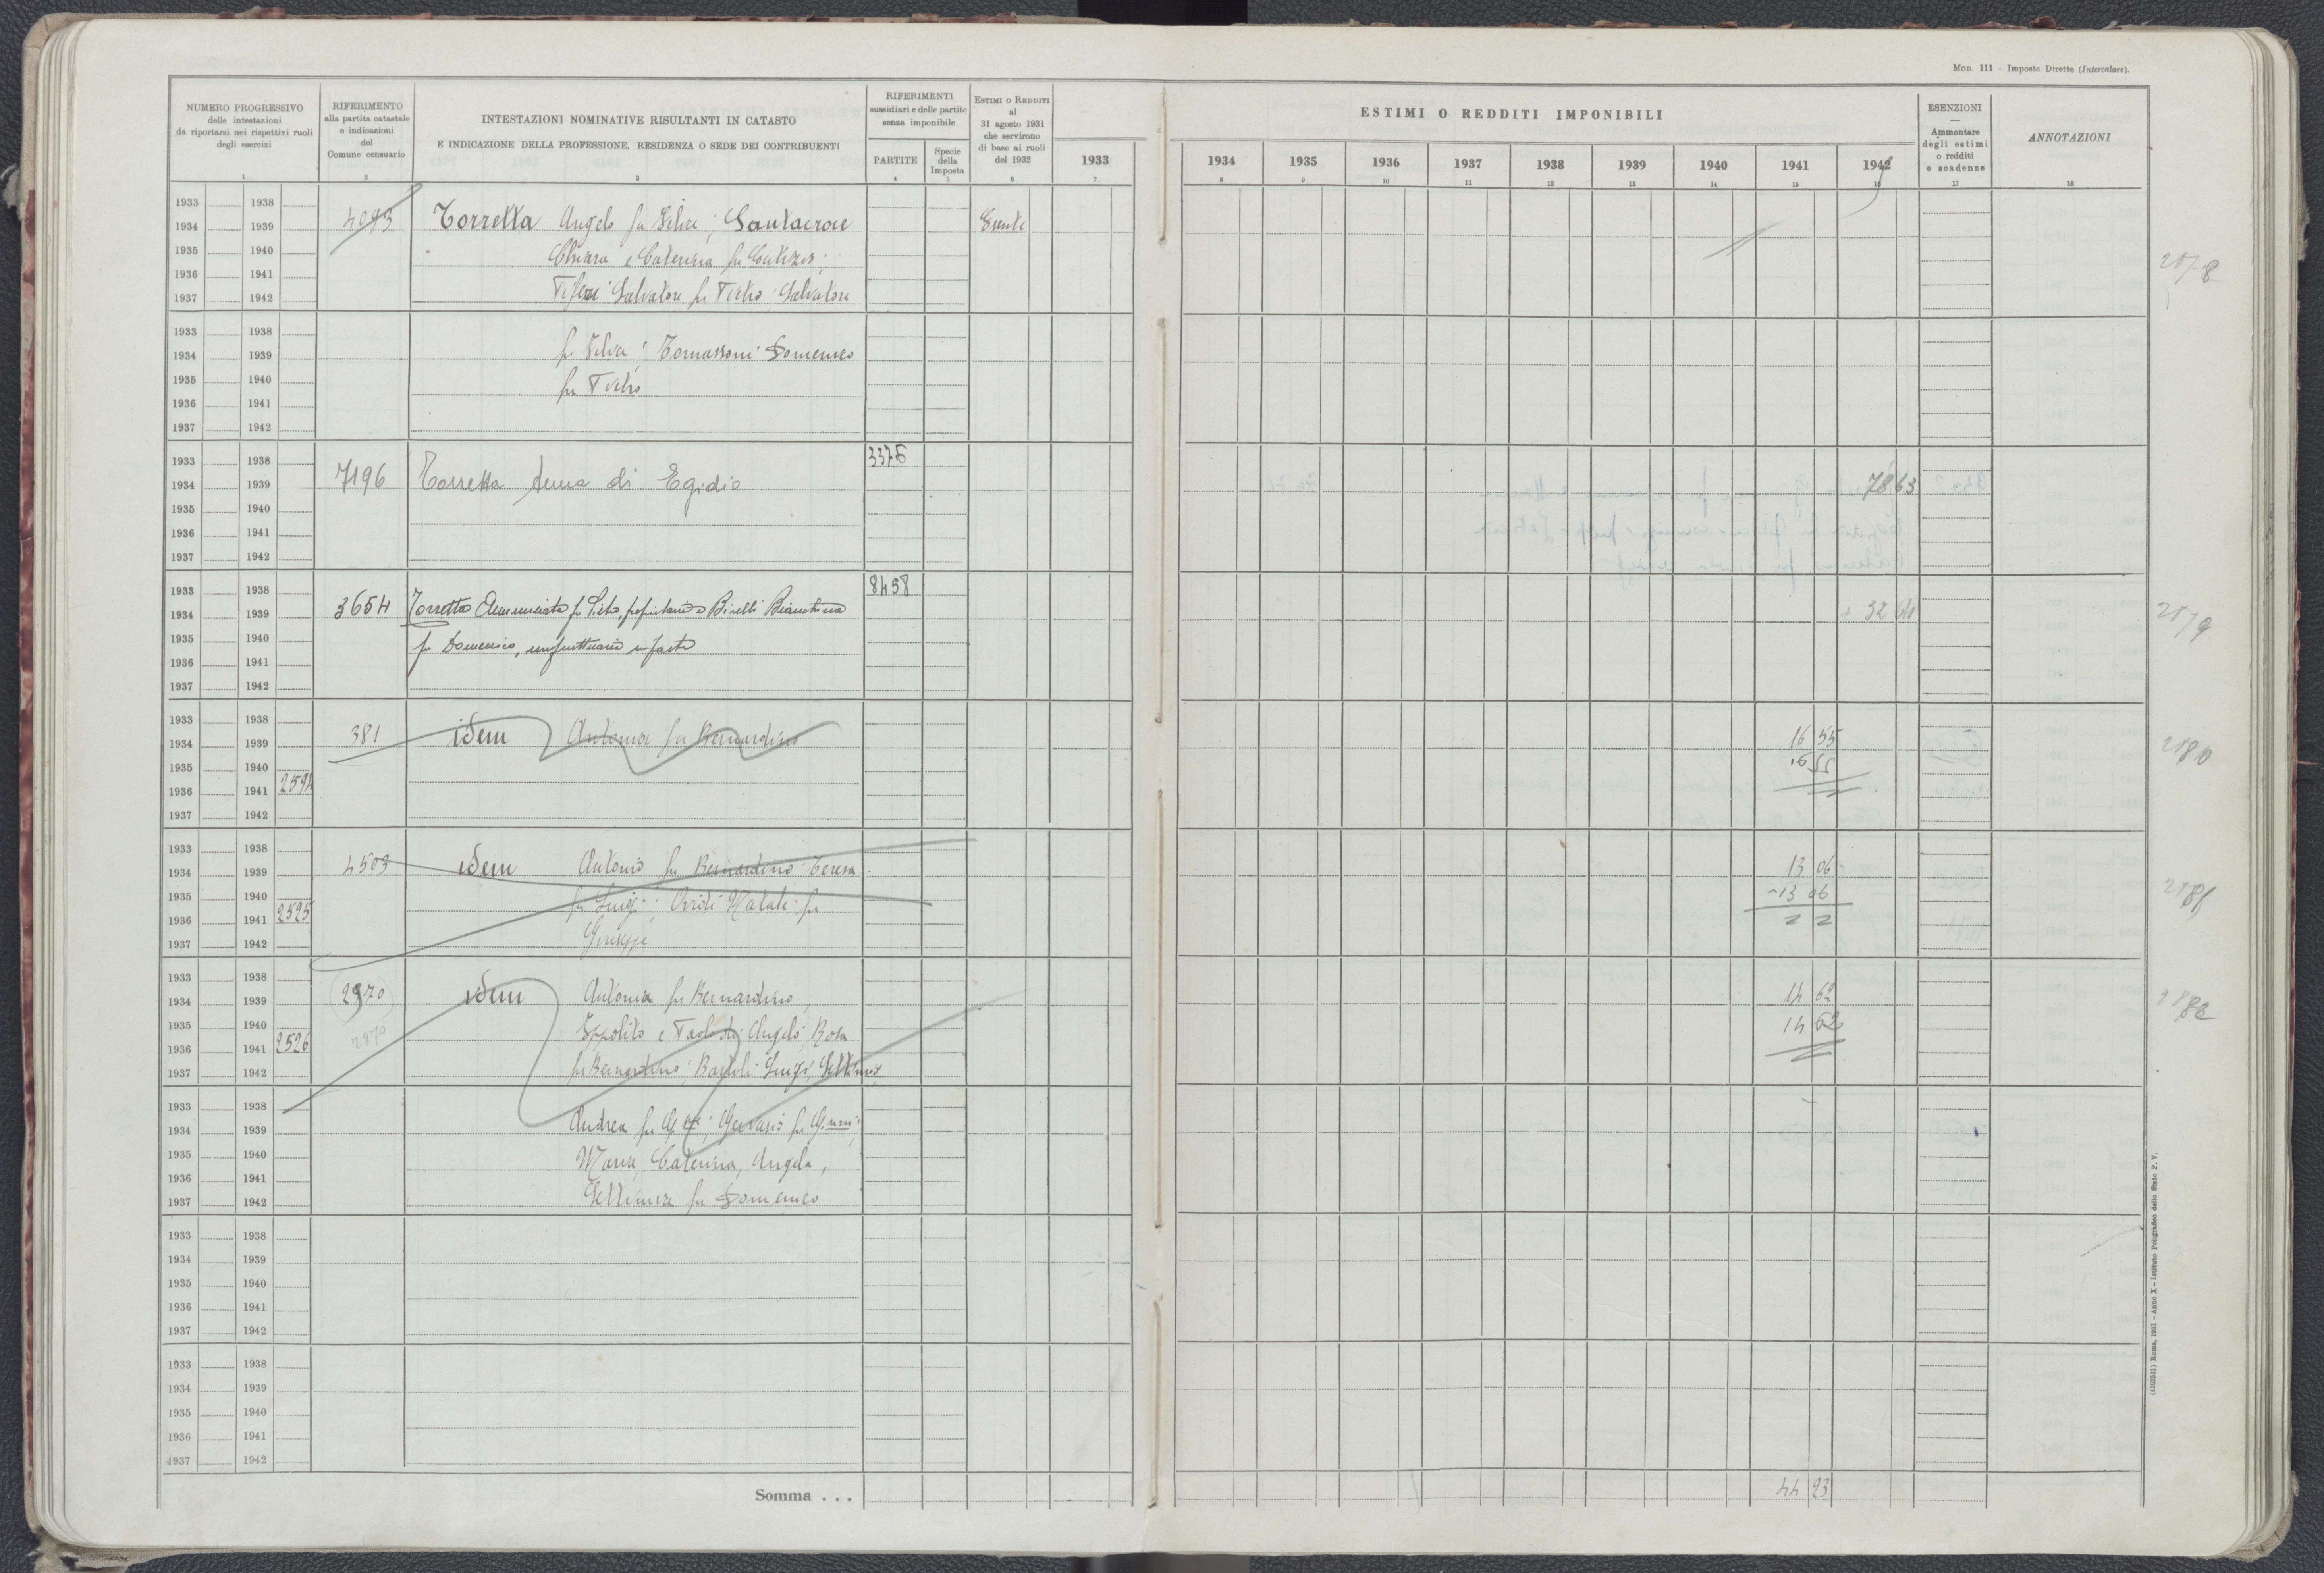 MOD. 111 – Imposte Dirette (Intercalare).
NUMERO PROGRESSIVO
delle intestazioni
da riportarsi nei rispettivi ruoli
degli esercizi
1
RIFERIMENTO
alla partita catastale
e indicazioni
del
Comune censuario
2
INTESTAZIONI NOMINATIVE RISULTANTI IN CATASTO
E INDICAZIONE DELLA PROFESSIONE, RESIDENZA O SEDE DEI CONTRIBUENTI
3
RIFERIMENTI
sussidiari e delle partite
senza imponibile
PARTITE
4
Specie
della
Imposta
5
ESTIMI O REDDITI
al
31 agosto 1931
che servirono
di base ai ruoli
del 1932
6
1933
7
ESTIMI O REDDITI IMPONIBILI
1934 1935 1936 1937 1938 1939 1940 1941 1942
8 9 10 11 12 13 14 15 16
ESENZIONI
—
Ammontare
degli estimi
o redditi
e scadenze
17
ANNOTAZIONI
18
1933 1938
1934 1939 4093 Torretta Angelo fu Silvia; Santacroce Esente
1935 1940 Chiara e Caterina fu
1936 1941 Salvatore fu Pietro; Salvatore
1937 1942
1933 1938
1934 1939 fu Silvia; Tomassoni Domenico
1935 1940 fu Pietro
1936 1941
1937 1942
1933 1938 3376
1934 1939 7196 Torretta di Egidio 78 63
1935 1940
1936 1941
1937 1942
1933 1938 8458
1934 1939 3654 Torretta Annunciata fu Pietro, Birelli 32
1935 1940 fu Domenico,
1936 1941
1937 1942
2179
1933 1938
1934 1939 381 idem Antonia fu Bernardino 16 55
1935 1940 16 55
1936 1941 2594
1937 1942
2180
1933 1938
1934 1939 4503 idem Antonio fu Bernardino; Teresa 13 06
1935 1940 fu Luigi; Natale fu -13 06
1936 1941 2525 Giuseppe
1937 1942
2181
1933 1938
1934 1939 2970 idem Antonia fu Bernardino, 14 62
1935 1940 2970 Ippolito e Angelo; Rosa 14 62
1936 1941 2526 fu Bernardino; Bartoli Luigi, Settimio,
1937 1942
2182
1933 1938
1934 1939 Andrea fu Gervasio fu
1935 1940 Maria, Caterina, Angela,
1936 1941 Settimia fu Domenico
1937 1942
1933 1938
1934 1939
1935 1940
1936 1941
1937 1942
1933 1938
1934 1939
1935 1940
1936 1941
1937 1942
Somma . . . 44 23
Roma, 1931 – Anno X – Istituto Poligrafico dello Stato P. V.